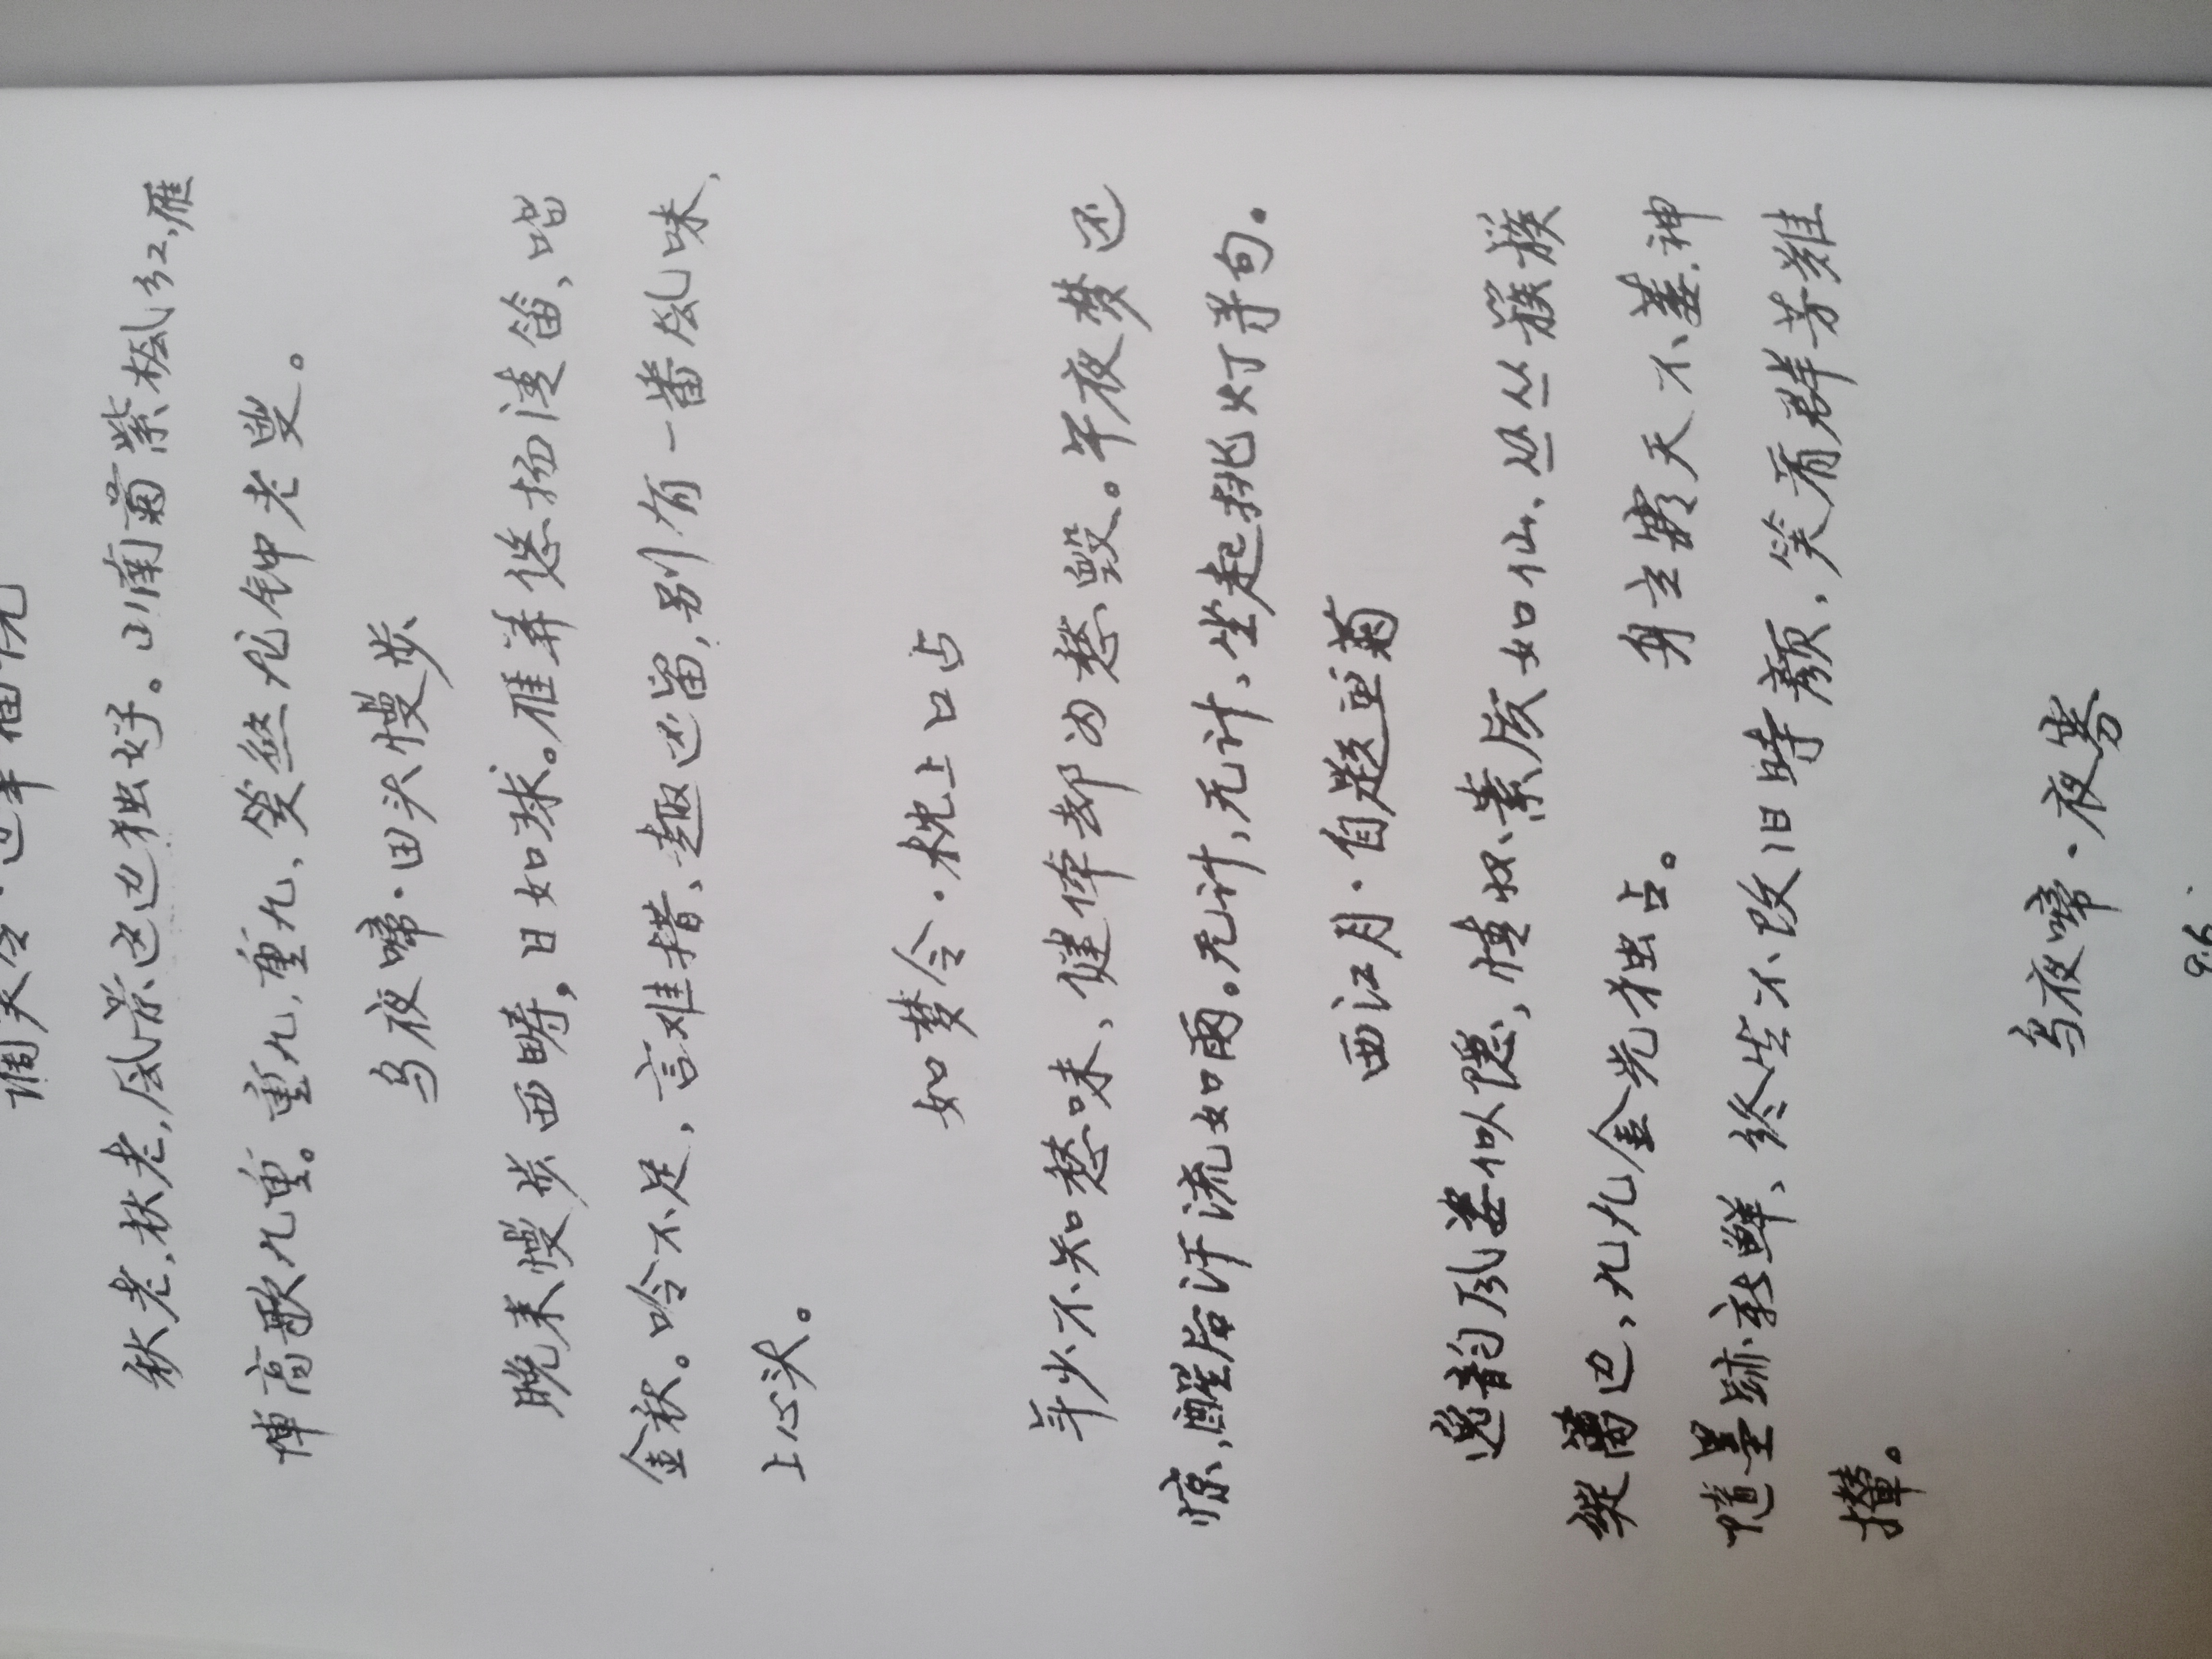 调笑令·近年值
秋老,秋老,风景这边独好。山南菊紫枫红,雁
俥高歌九重。重九,重九,笑煞龙钟老叟。
乌夜啼·田头慢步
晚来慢步西畴,日如球。雁弄悠扬清笛、唱
金秋。吟不足,言难措、趣还留,别有一番风味、
上心头。
如梦令·枕上口占
年少不知愁味、健体却为愁毁。午夜梦还
惊,醒后汗流如雨。无计,无计、坐起挑灯寻句。
西江月·自题画菊
逸韵风姿似隐,情如素质如仙、丛丛簇簇
绽篱边、九九金光独占。 身立霜天不萎,神
随墨迹新鲜、终生不改旧时颜,笑看群芳难
撵。
乌夜啼·夜寒
96